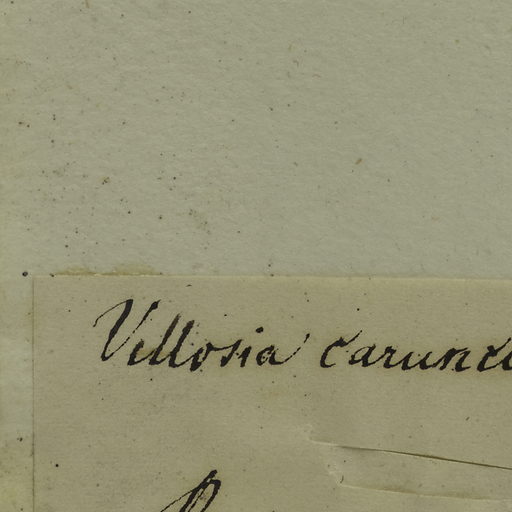 Vellosia carunc